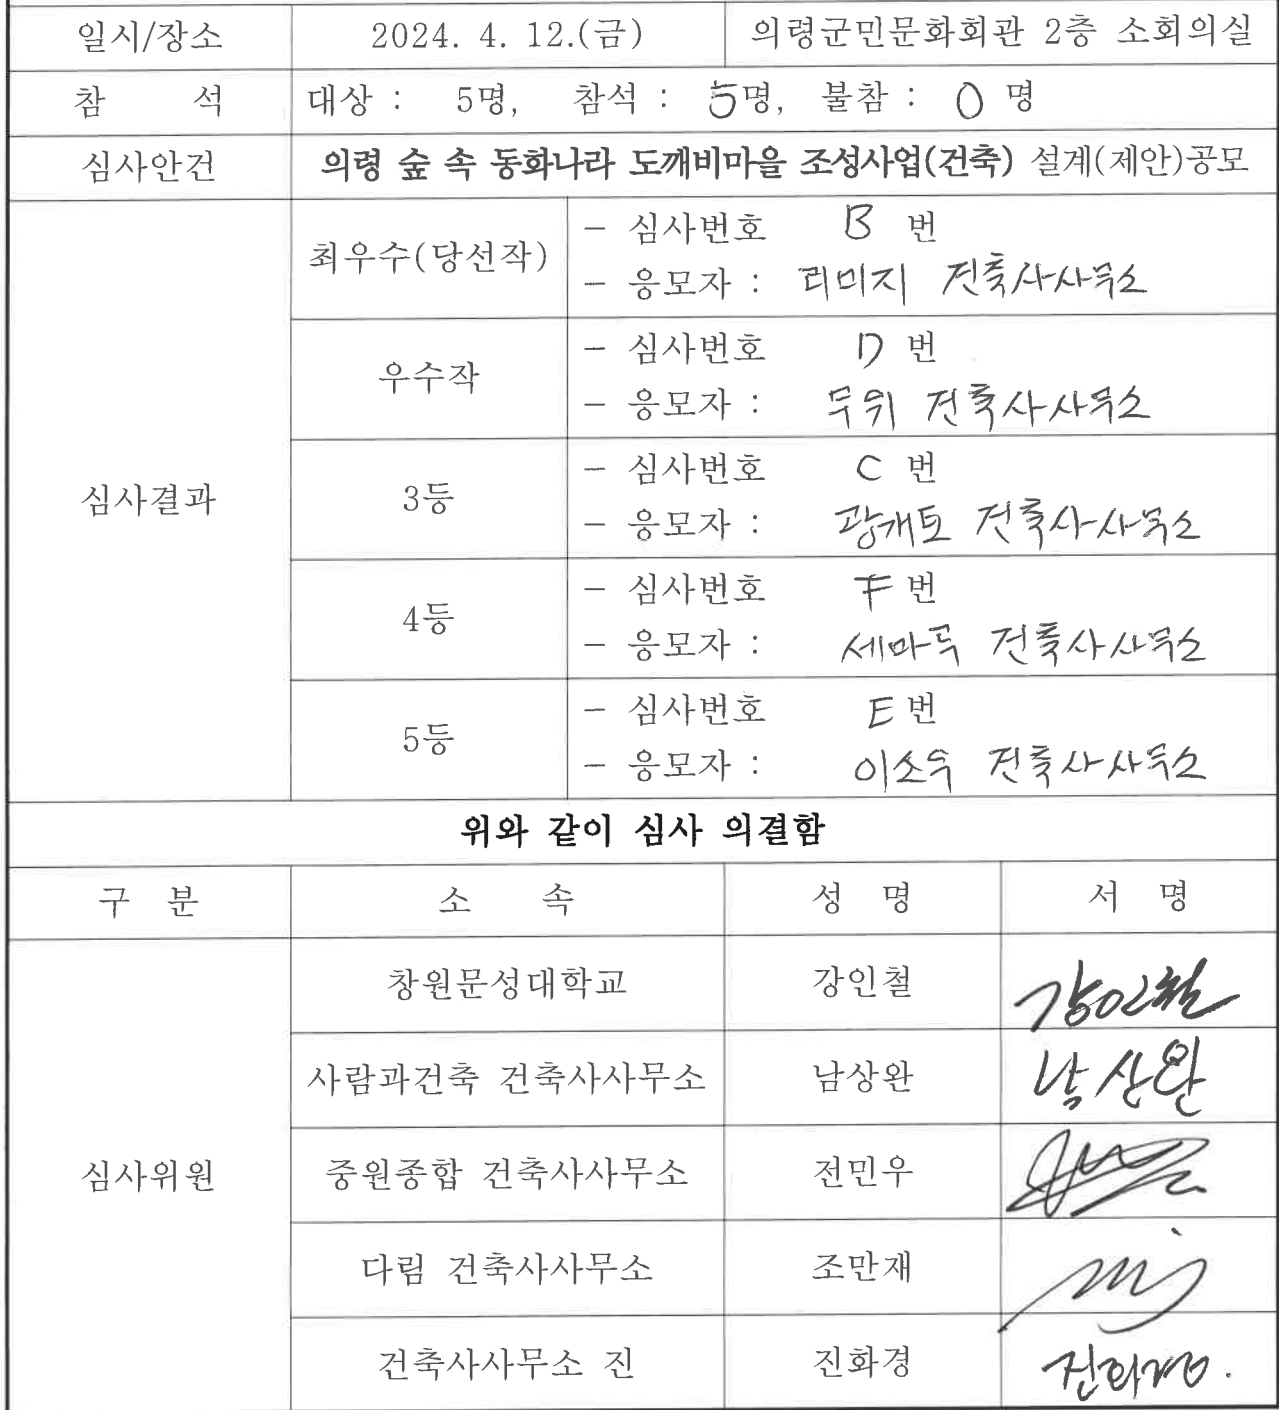 일시/장소 2024. 4. 12.(금) 의령군민문화회관 2층 소회의실
참 석 대상 : 5명, 참석 : 5명, 불참 : 0 명
심사안건 의령 숲 속 동화나라 도깨비마을 조성사업(건축) 설계(제안)공모
심사결과
최우수(당선작)
- 심사번호 B 번
- 응모자 : 리미지 건축사사무소
우수작
- 심사번호 D 번
- 응모자 : 무위 건축사사무소
3등
- 심사번호 C 번
- 응모자 : 광개토 건축사사무소
4등
- 심사번호 F 번
- 응모자 : 세마루 건축사사무소
5등
- 심사번호 E 번
- 응모자 : 이소우 건축사사무소
위와 같이 심사 의결함
구 분 소 속 성 명 서 명
심사위원
창원문성대학교 강인철 강인철
사람과건축 건축사사무소 남상완 남상완
중원종합 건축사사무소 전민우
다림 건축사사무소 조만재
건축사사무소 진 진화경 진화경.